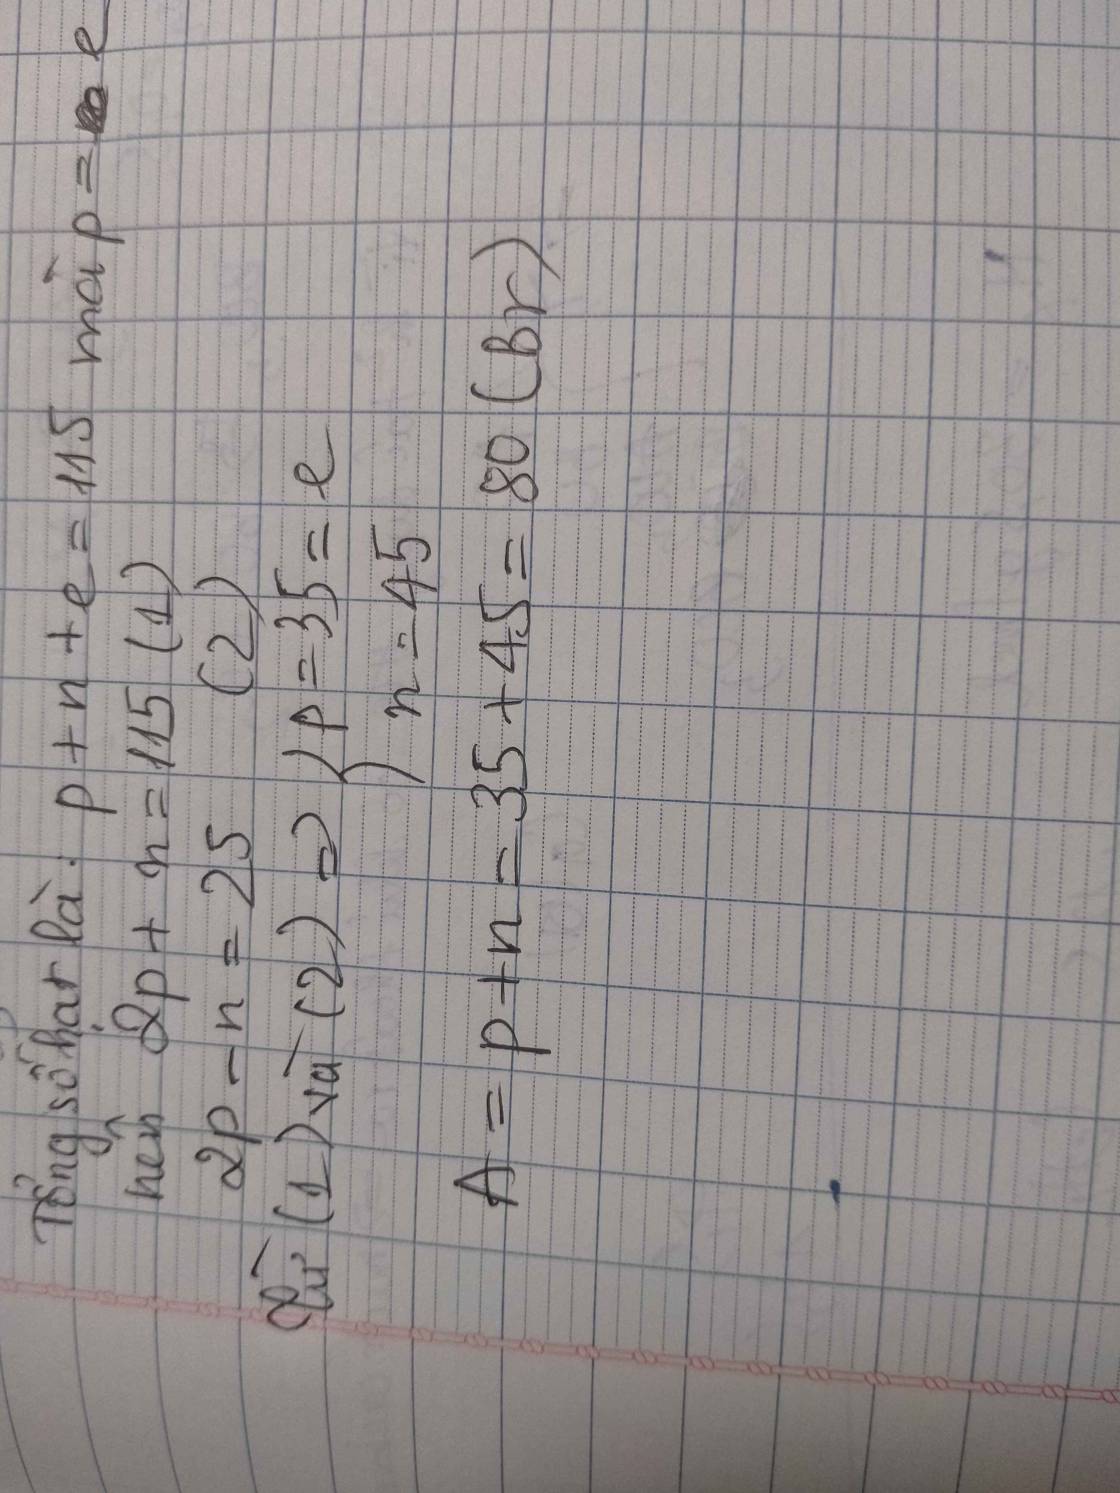 Tổng số hạt là: p + n + e = 115 mà p = e
nên 2p + n = 115 (1)
2p - n = 25 (2)
Từ (1) và (2) => { p = 35 = e
n = 45
A = p + n = 35 + 45 = 80 (Br)